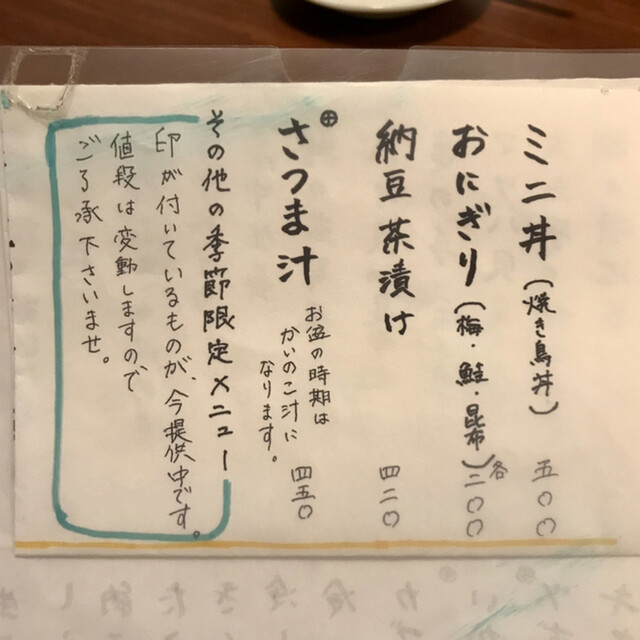 ミニ丼（焼き鳥丼） 五〇〇
おにぎり（梅・鮭・昆布）各二〇〇
納豆茶漬け 四二〇
⊕さつま汁 四五〇
お盆の時期は
かいのこ汁に
なります。
その他の季節限定メニュー
印が付いているものが、今提供中です。
値段は変動しますので
ご了承下さいませ。